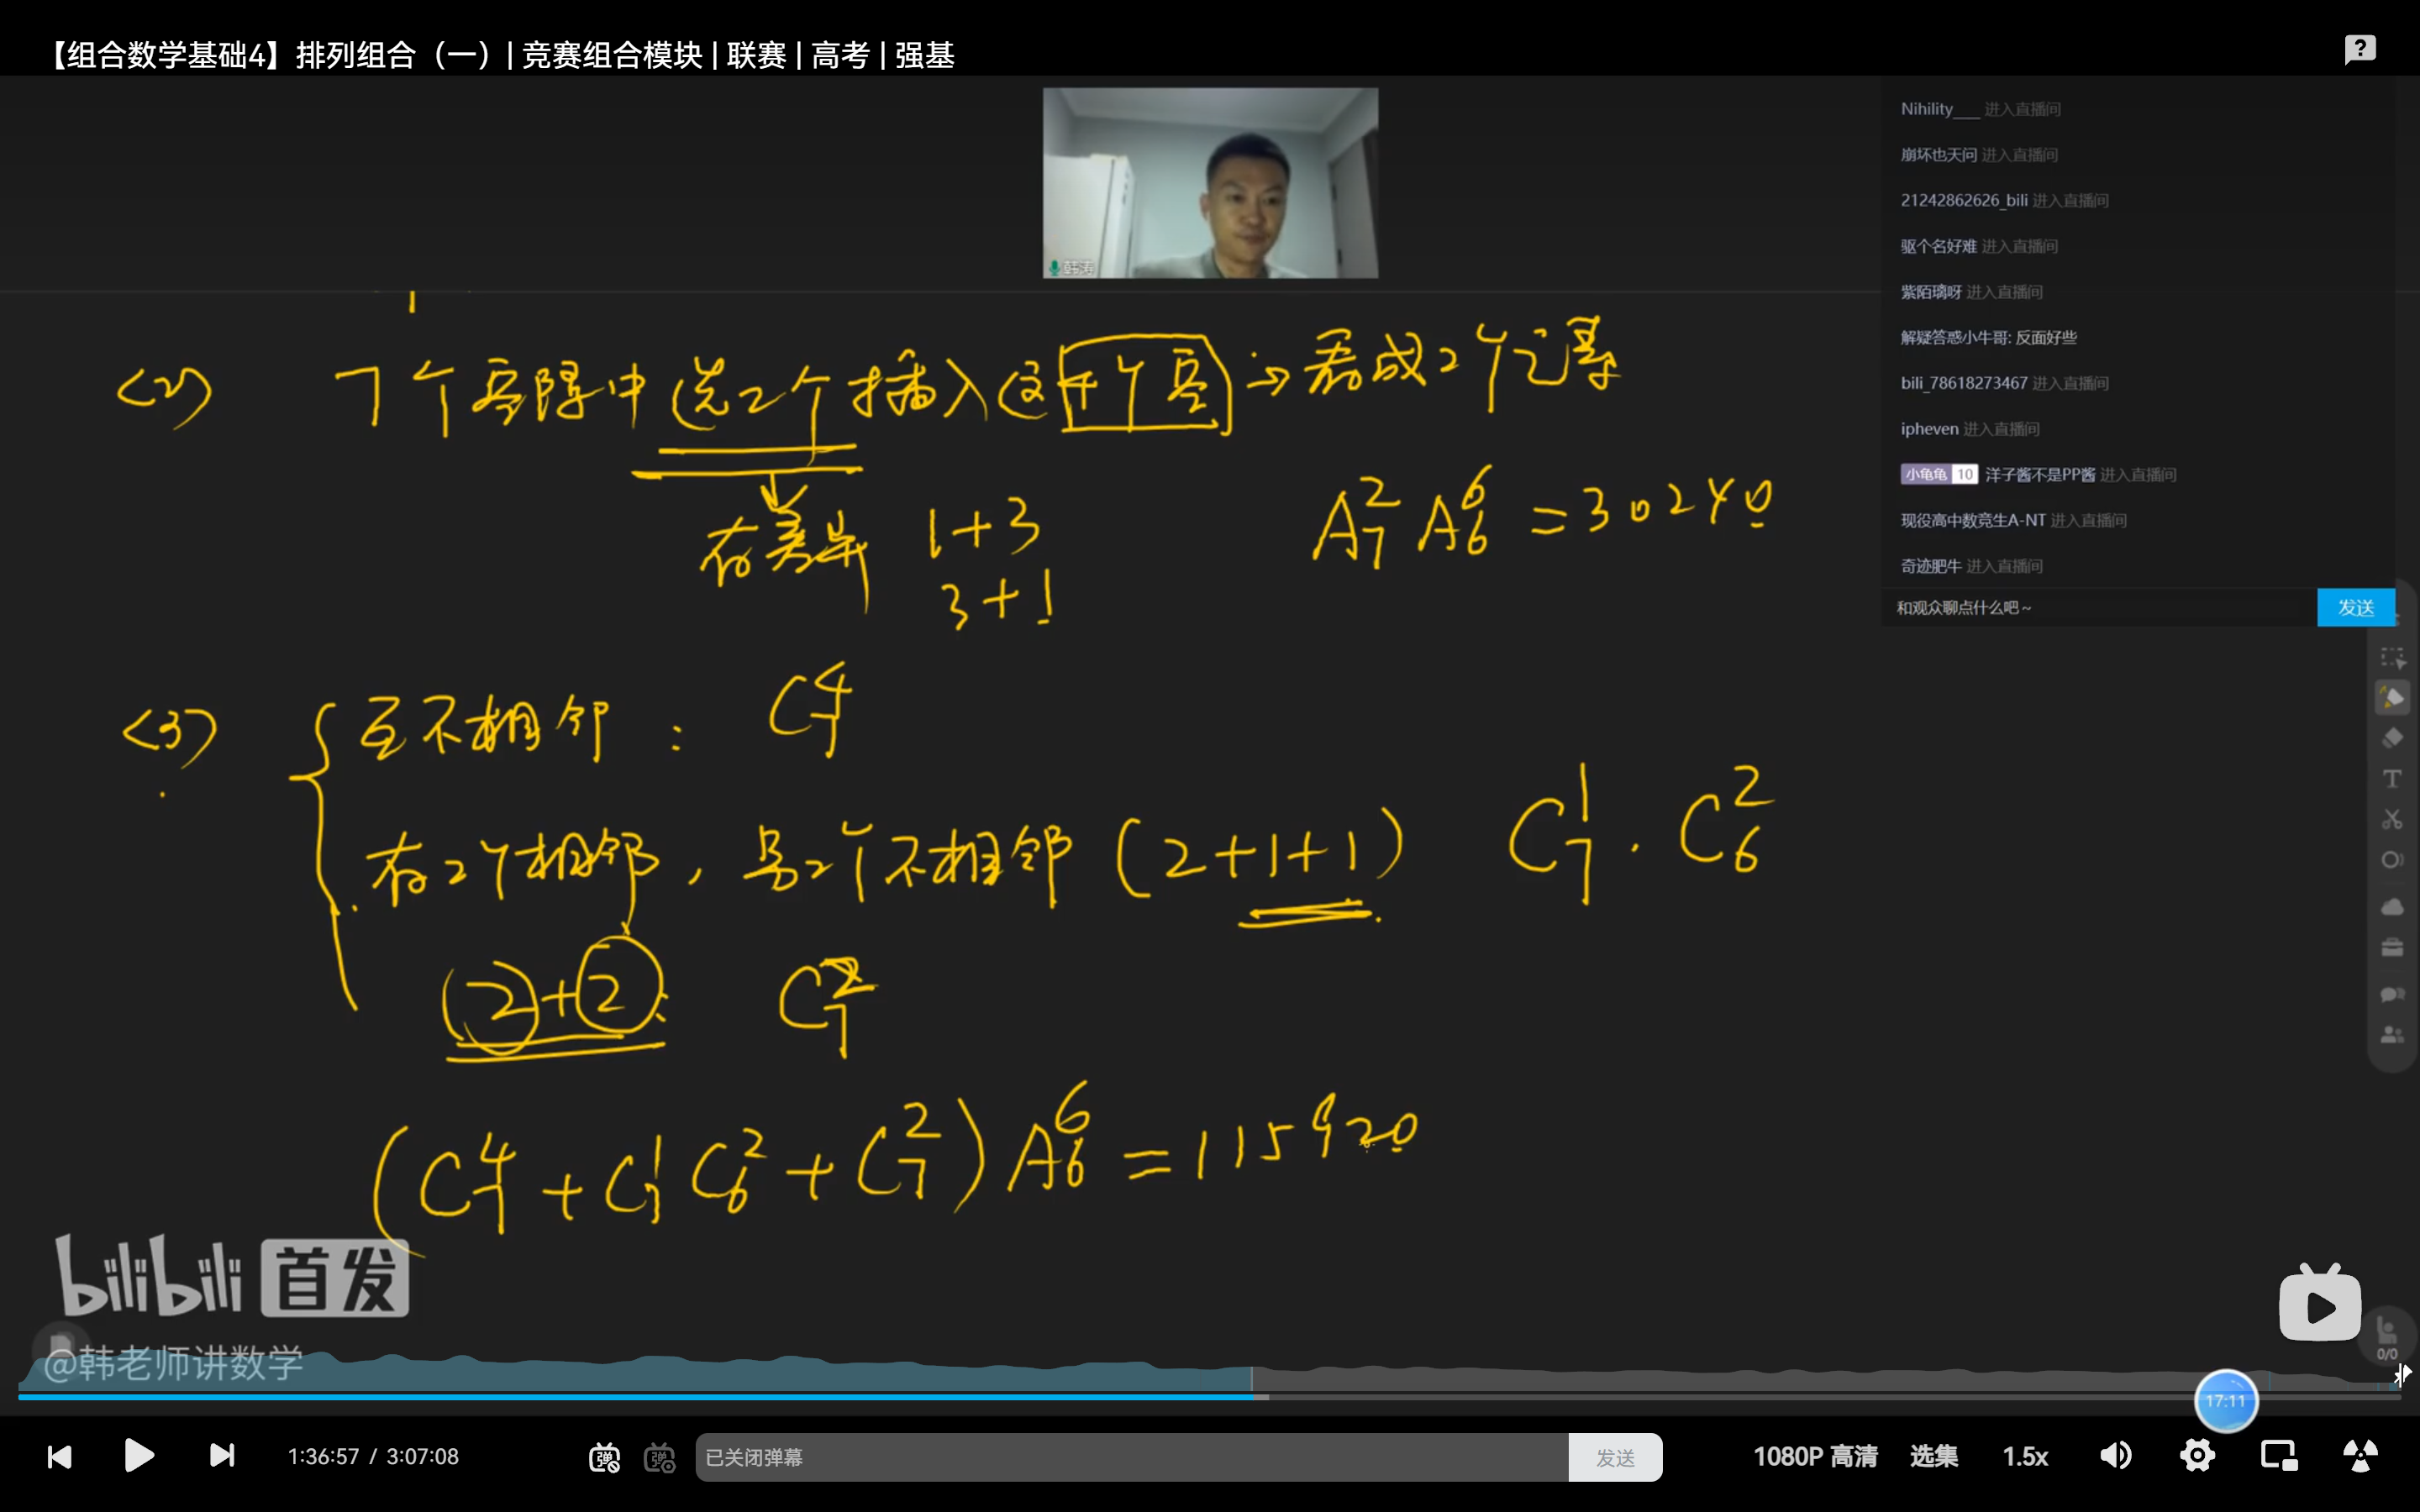 【组合数学基础4】排列组合（一）| 竞赛组合模块 | 联赛 | 高考 | 强基
Nihility___ 进入直播间
崩坏也天问 进入直播间
21242862626_bili 进入直播间
驱个名好难 进入直播间
紫陌璃呀 进入直播间
解疑答惑小牛哥: 反面好些
bili_78618273467 进入直播间
ipheven 进入直播间
小龟龟 10 洋子酱不是PP酱 进入直播间
现役高中数竞生A-NT 进入直播间
奇迹肥牛 进入直播间
和观众聊点什么吧~
发送
韩涛
<2> 7个空隙中选2个插入这4个空→看成2个元素
有差异 1+3
3+1
A₇² A₆⁶ = 30240
<3> 互不相邻： C₇⁴
有2个相邻，另2个不相邻 (2+1+1) C₇¹ · C₆²
(2)+(2) C₇²
(C₇⁴ + C₇¹ C₆² + C₇²) A₆⁶ = 115920
bilibili 首发
@韩老师讲数学
0/0
17:11
1:36:57 / 3:07:08
弹
弹
已关闭弹幕
发送
1080P 高清
选集
1.5x